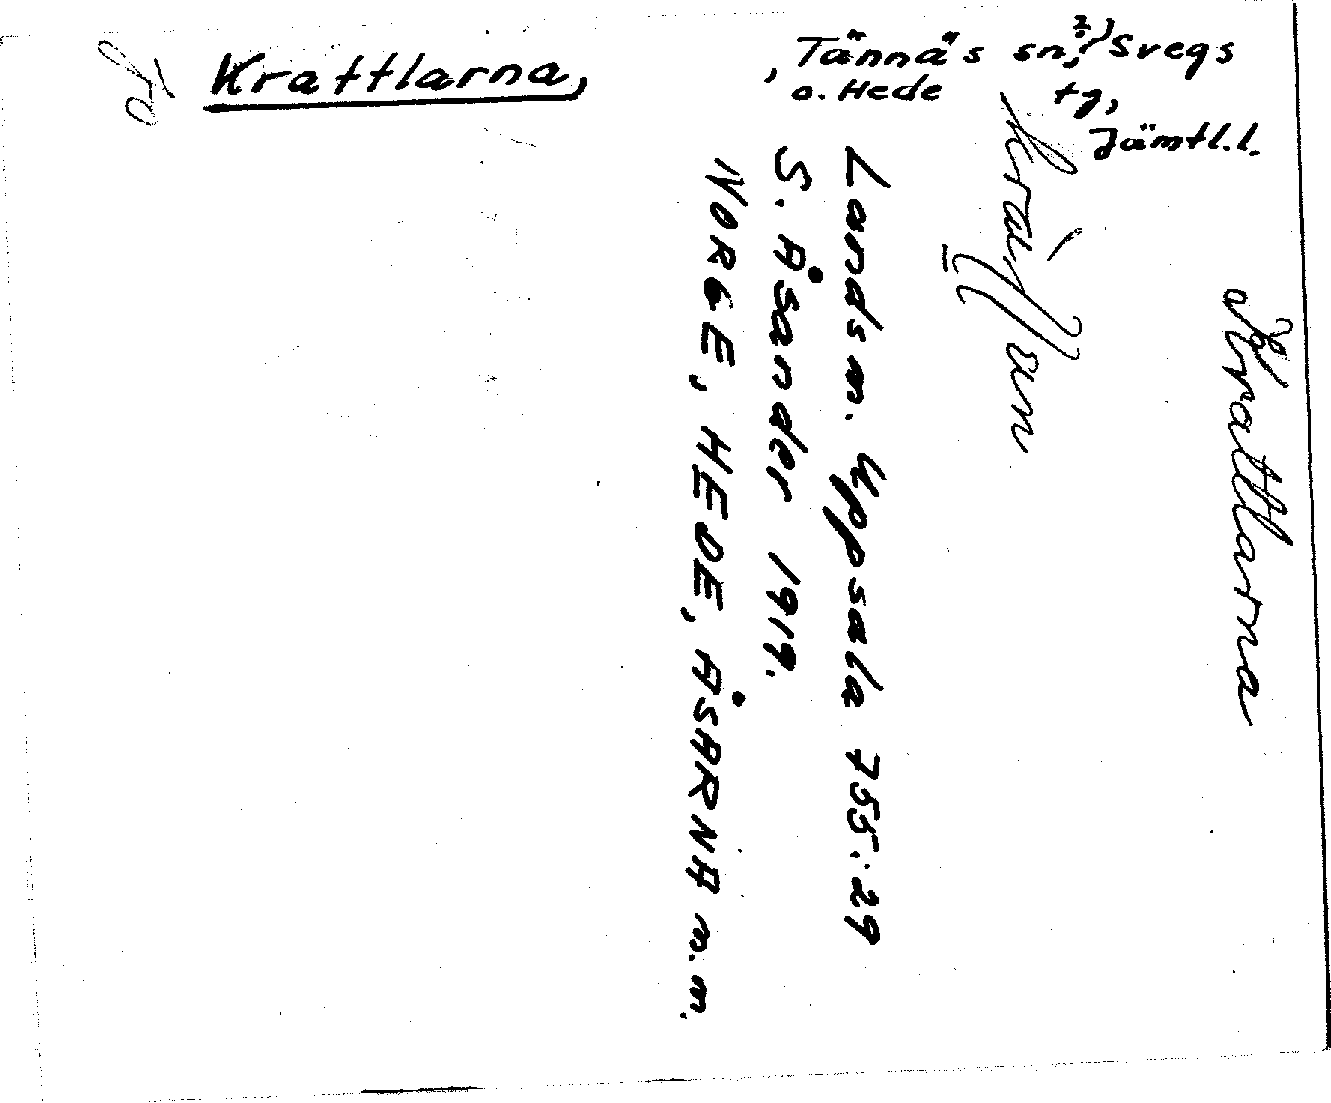 Krattlarna,
, Tännäs sn, (?) Svegs
o. Hede tg,
Jämtl.l.
Krattlarna
Landsm. Uppsala 755:29
S. Åsander 1919.
NORGE, HEDE, ÅSARNA m.m.